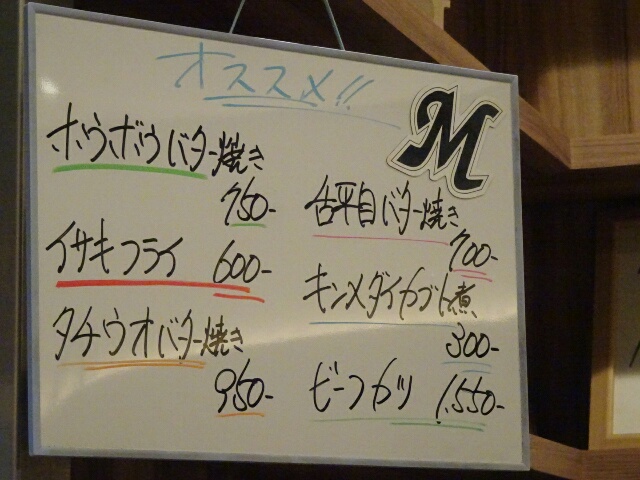 オススメ!!
M
ホウボウバター焼き
750-
イサキフライ 600-
タチウオバター焼き
950-
舌平目バター焼き
700-
キンメダイカブト煮
300-
ビーフカツ 1,550-